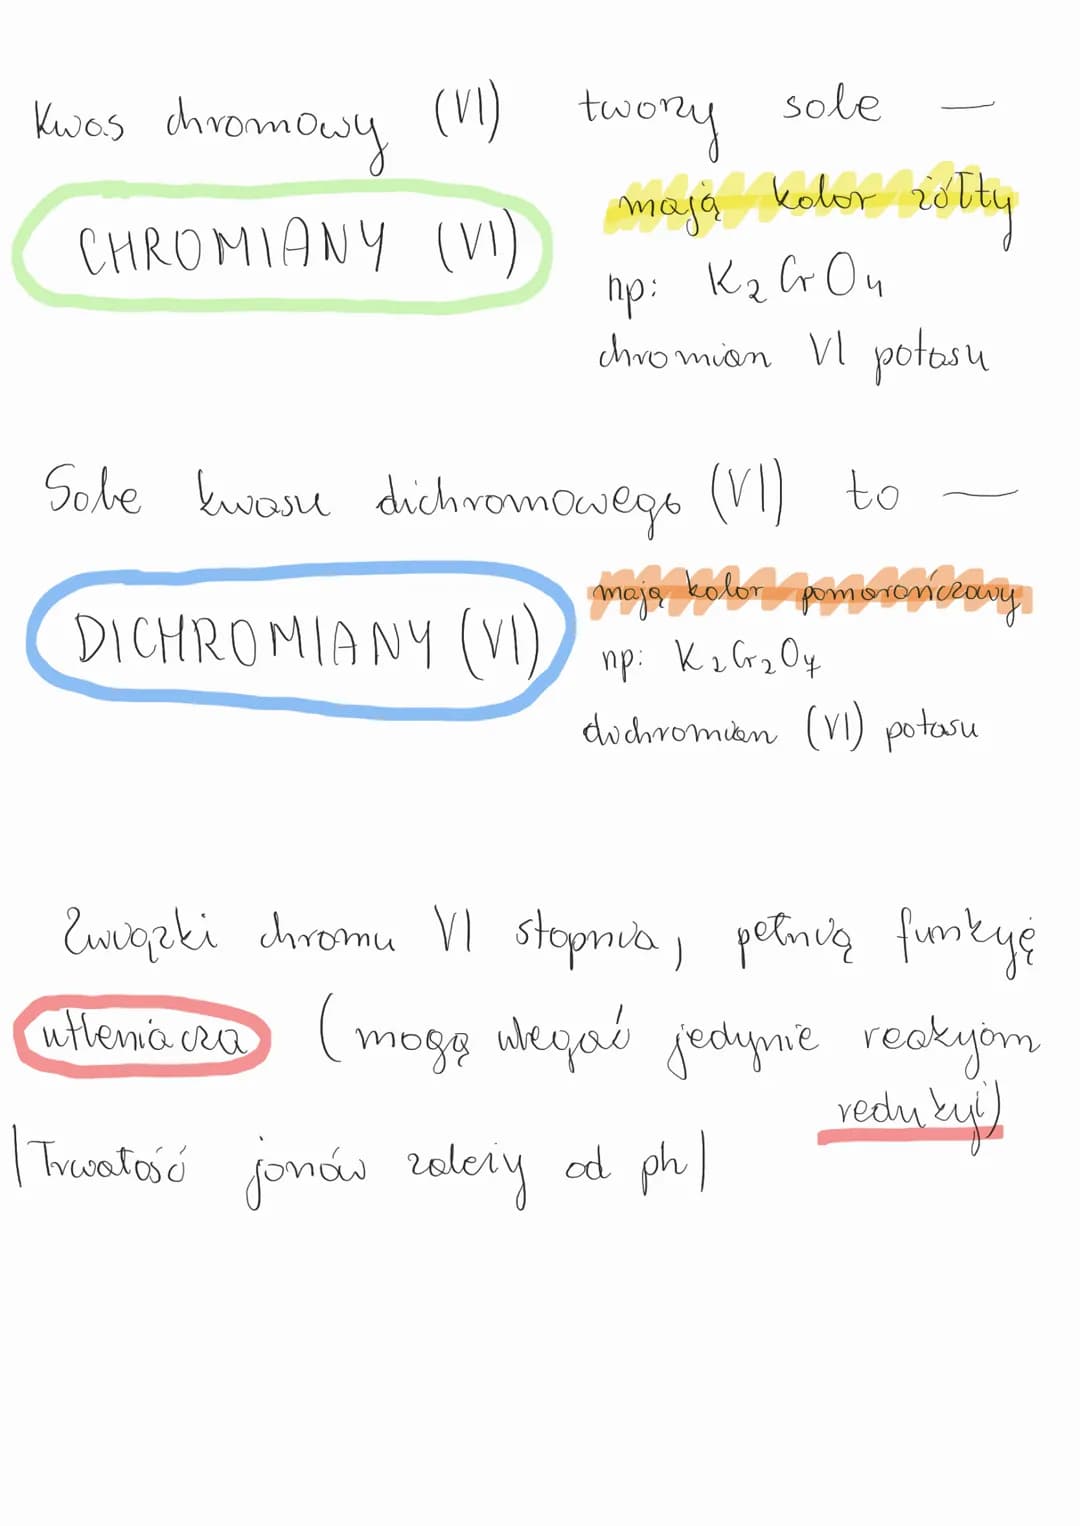 Kwas chromowy (VI) tworzy sole —
CHROMIANY (VI)
mają kolor żółty
np: K₂CrO₄
chromian VI potasu
Sole kwasu dichromowego (VI) to —
DICHROMIANY (VI)
mają kolor pomarańczowy
np: K₂Cr₂O₇
dichromian (VI) potasu
Związki chromu VI stopnia, pełnią funkcję
utleniacza (mogą ulegać jedynie reakcjom
redukcji)
|Trwałość jonów zależy od ph|